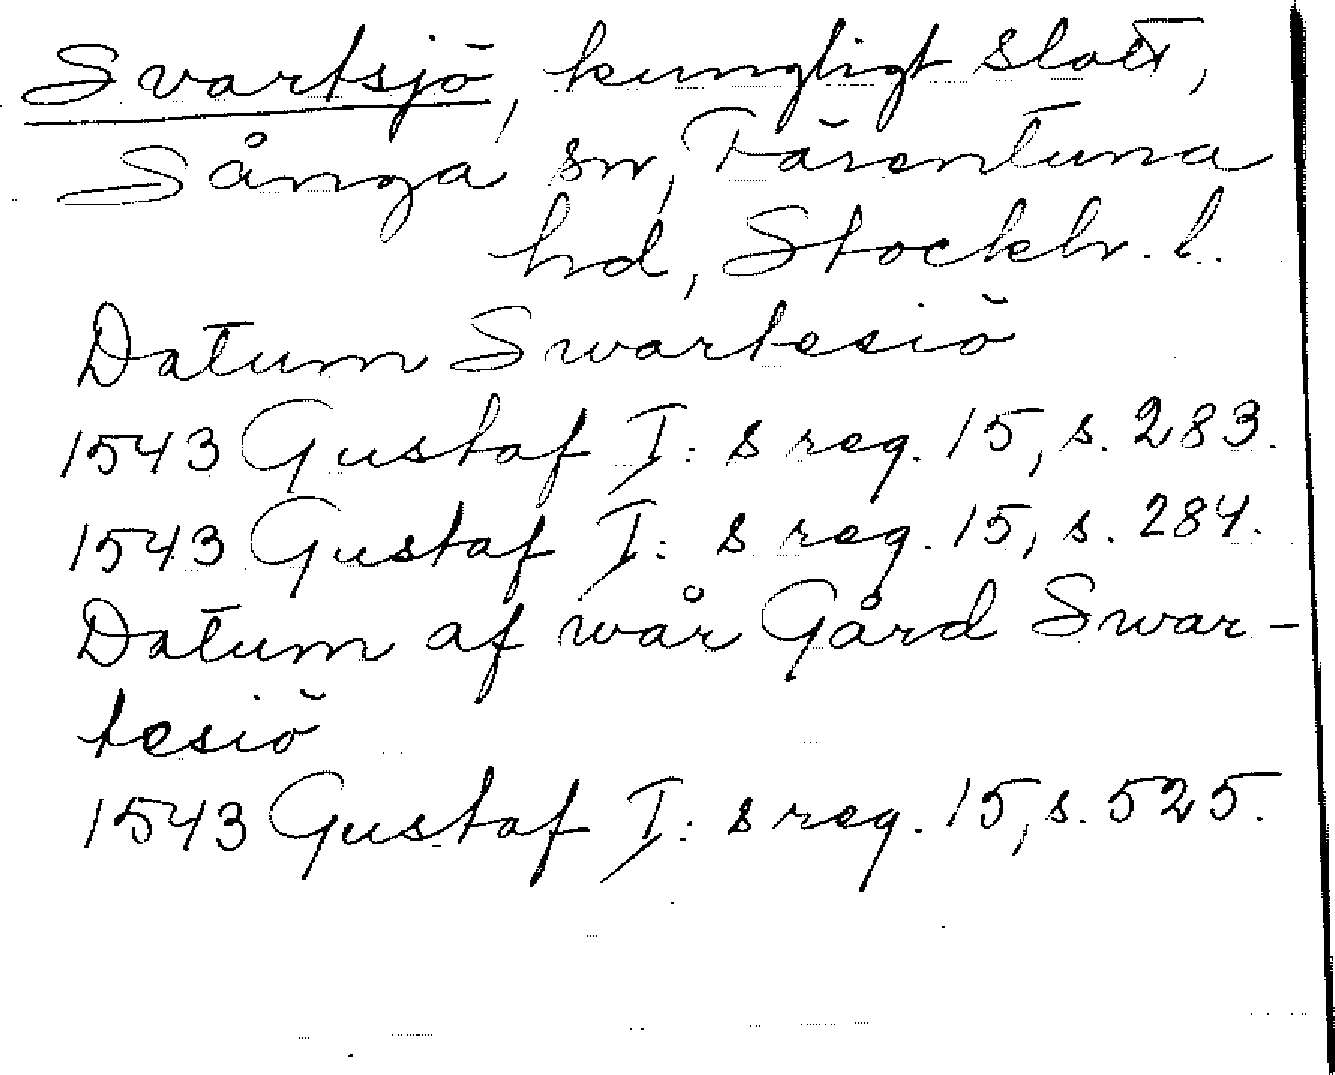 Svartsjö, kungligt slott,
Sånga sn, Färentuna
hd, Stockh. l.
Datum Swartesiö
1543 Gustaf I: s reg. 15, s. 283.
1543 Gustaf I: s reg. 15, s. 284.
Datum af wår Gård Swar-
tesiö
1543 Gustaf I: s reg. 15, s. 525.